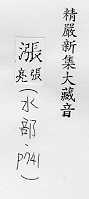 精嚴新集大藏音
漲
張亮
(水部,p741)